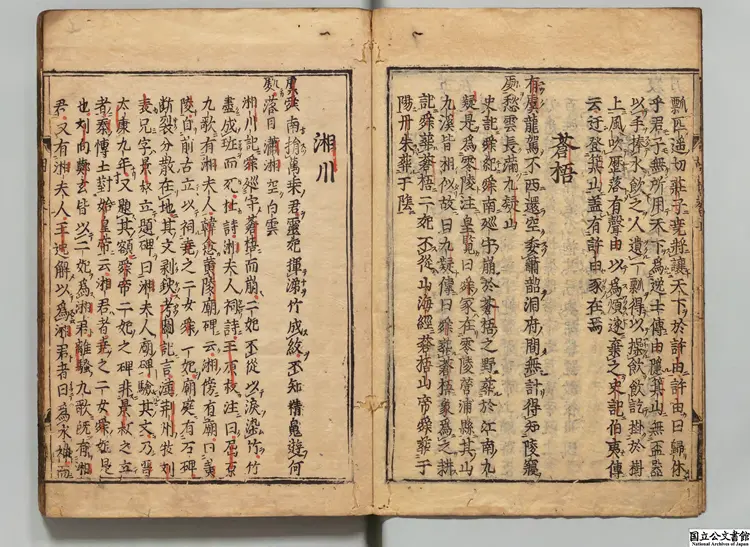 瓢匹遥切莊子堯將讓天下於許由許由曰歸休
乎君予無所用天下為逸士傳由隱箕山無盃器
以手捧水飲之人遺一瓢得以操飲飲訖掛於樹
上風吹瓢落有聲由以為煩遂棄之史記伯夷傳
云迁登箕山蓋有許由冢在焉
蒼梧
有虞龍駕不西還空委簫韶洞府間無計得知陵寢
處愁雲長滿九疑山
史記舜紀舜南巡守崩於蒼梧之野葬於江南九
疑是為零陵注皇覽曰舜冢在零陵營浦縣其山
九溪皆相似故曰九疑傳曰舜葬蒼梧象為之耕
記舜葬蒼梧二妃不從山海經蒼梧山帝舜葬于
陽丹朱葬于陰
湘川
虞舜南捐萬乘君靈妃揮涕竹成紋不知精鬼遊何
處落日瀟湘空白雲
湘川記舜巡守蒼梧而崩二妃不從以淚染竹竹
盡成班而死杜詩湘夫人祠詩王原叔注曰屈原
九歌有湘夫人韓愈黃陵廟碑云湘傍有廟曰黃
陵自前古立以祠堯之二女舜二妃廟庭有石碑
斷裂分散在地其文剥缺考圖記言漢荊州牧刘
表兄字景叔立題碑曰湘夫人廟碑驗其文乃晉
太康九年又題其額舜帝二妃之碑非景叔之立
者秦博士對始皇帝云湘君者堯之二女舜妃是
也刘向鄭玄皆以二妃為湘君離騷九歌既有湘
君又有湘夫人王逸解以為湘君者曰為水神而
国立公文書館
National Archives of Japan